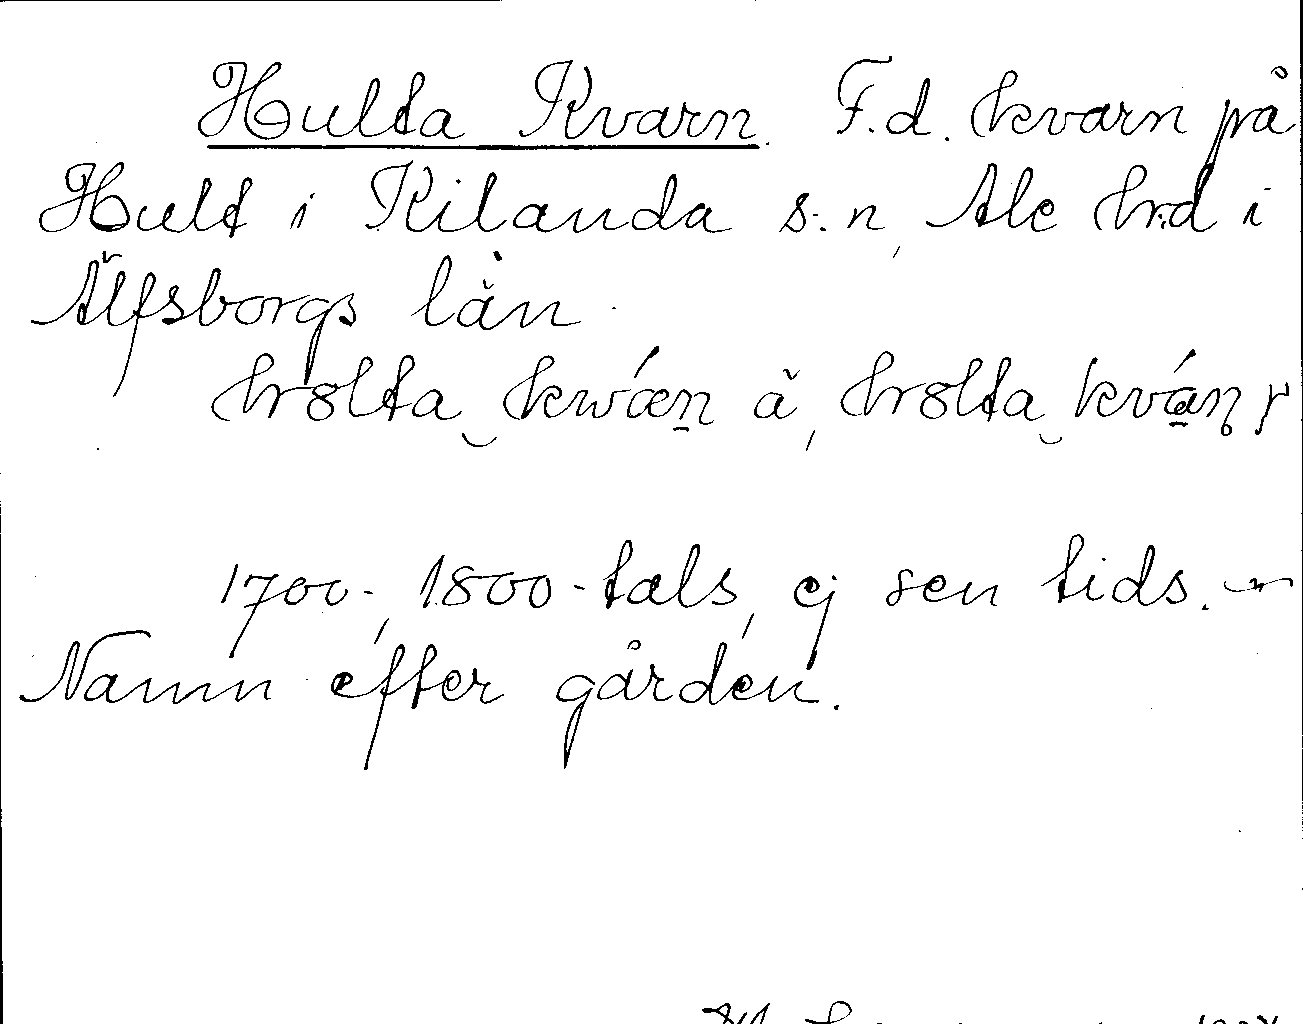 Hulta Kvarn. F.d. kvarn på
Hult i Kilanda s:n, Ale hrd i
Älfsborgs län.
holta kwæn å, holta kván,
1700-, 1800-tals, ej sen tids. –
Namn efter gården.